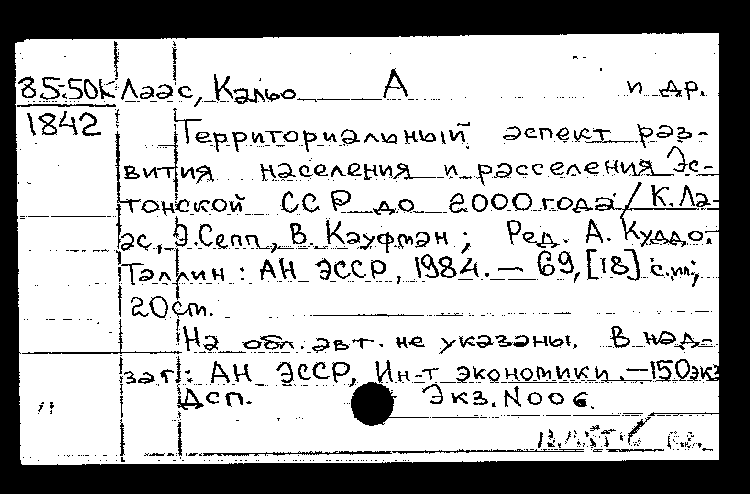 85-50К Лаас, Кальо А и др.
1842
Территориальный аспект раз-
вития населения и расселения Эс-
тонской ССР до 2000 года / К. Ла-
ас, Э. Сепп, В. Кауфман; Ред. А. Куддо.
Таллин: АН ЭССР, 1984. — 69, [18] с. ил;
20 см.
На обл. авт. не указаны. В над-
заг: АН ЭССР, Ин-т экономики. — 150 экз
Дсп. Экз. N 006.